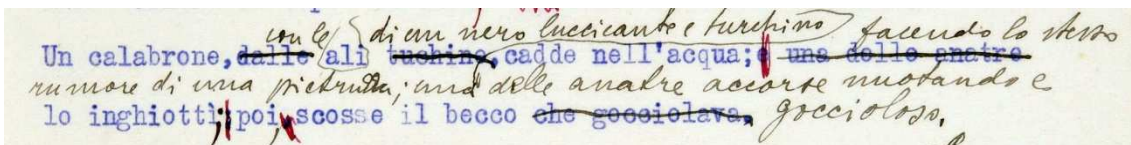 con le di un nero luccicante e turchino facendo lo stesso
Un calabrone, dalle ali tuchine, cadde nell'acqua; e una delle anatre
rumore di una pietruzza; una delle anatre accorse nuotando e
lo inghiottì; poi, scosse il becco che gocciolava, goccioloso.